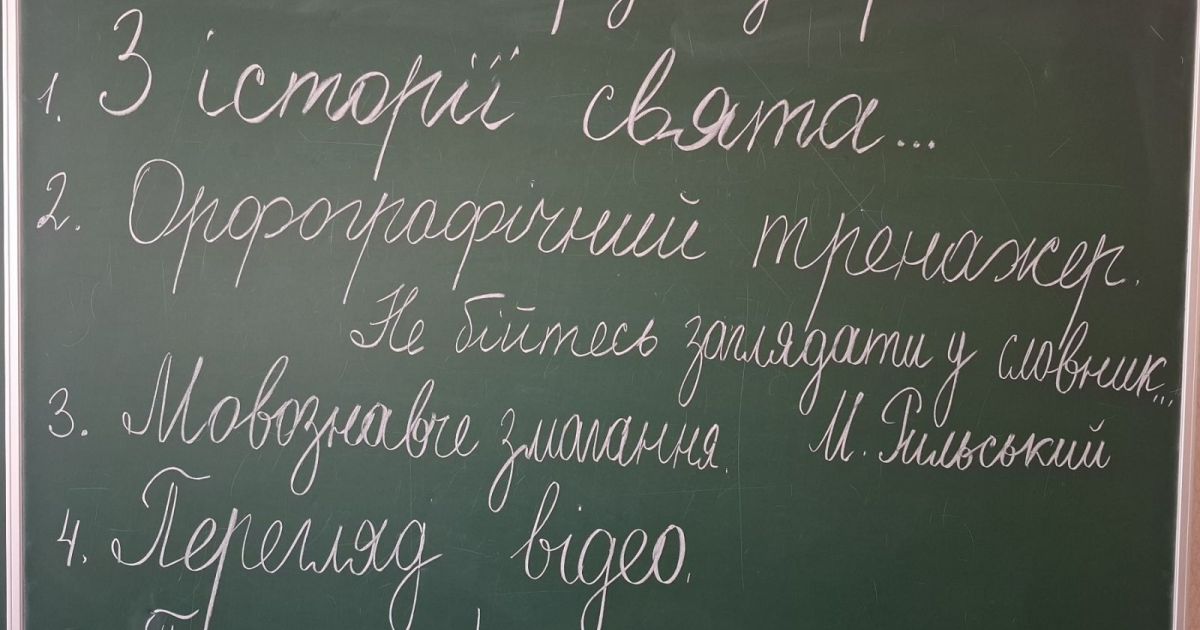 1. З історії свята...
2. Орфографічний тренажер.
Не бійтесь заглядати у словник...
3. Мовознавче змагання. М. Рильський
4. Перегляд відео.